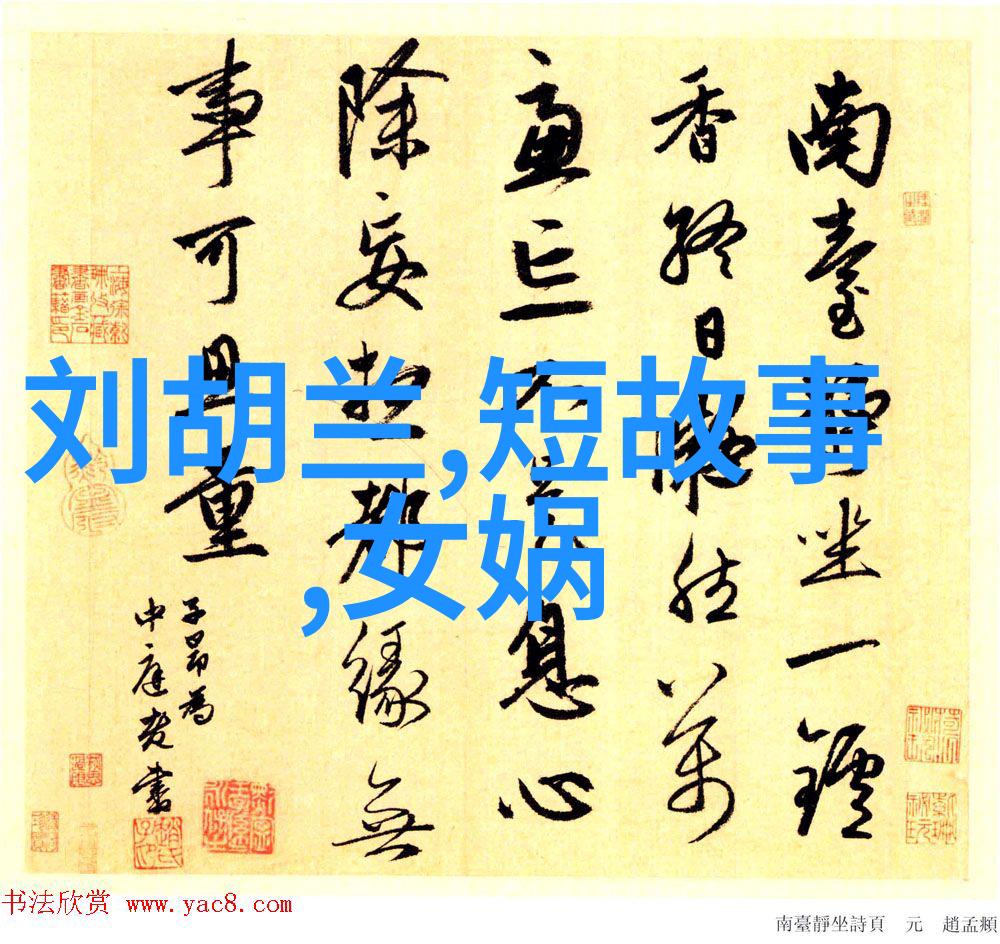 南臺靜坐一鑪
香終日凝然萬
慮亡不是息心
除妄想都緣無
事可思量
子昂為
中庭老書
刘胡兰,短故事
,女娲
书法欣赏 www.yac8.com
南臺靜坐詩頁 元 趙孟頫